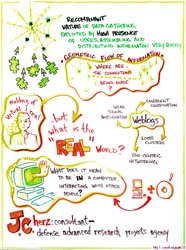 RECOMBINANT
NATURE OF DATA GATHERING,
EXPLOITED BY HIGH PRESENCE
OF USERS, ASSEMBLING AND
DISTRIBUTING INFORMATION VERY QUICKLY
GEOMETRIC FLOW OF INFORMATION
WHERE ARE
THE CONNECTIONS
BEING MADE
?
melding of
virtual + real
but
what is the
"REAL"
WORLD?
EMERGENT COORDINATION
Weblogs
LOOSE
CLUSTERS
EGO-CENTRIC
NETWORKING
WHAT DOES IT MEAN
TO BE IN A COMPUTER
INTERACTING WITH OTHER
PEOPLE?
JC herz: consultant-
defense advanced research projects agency